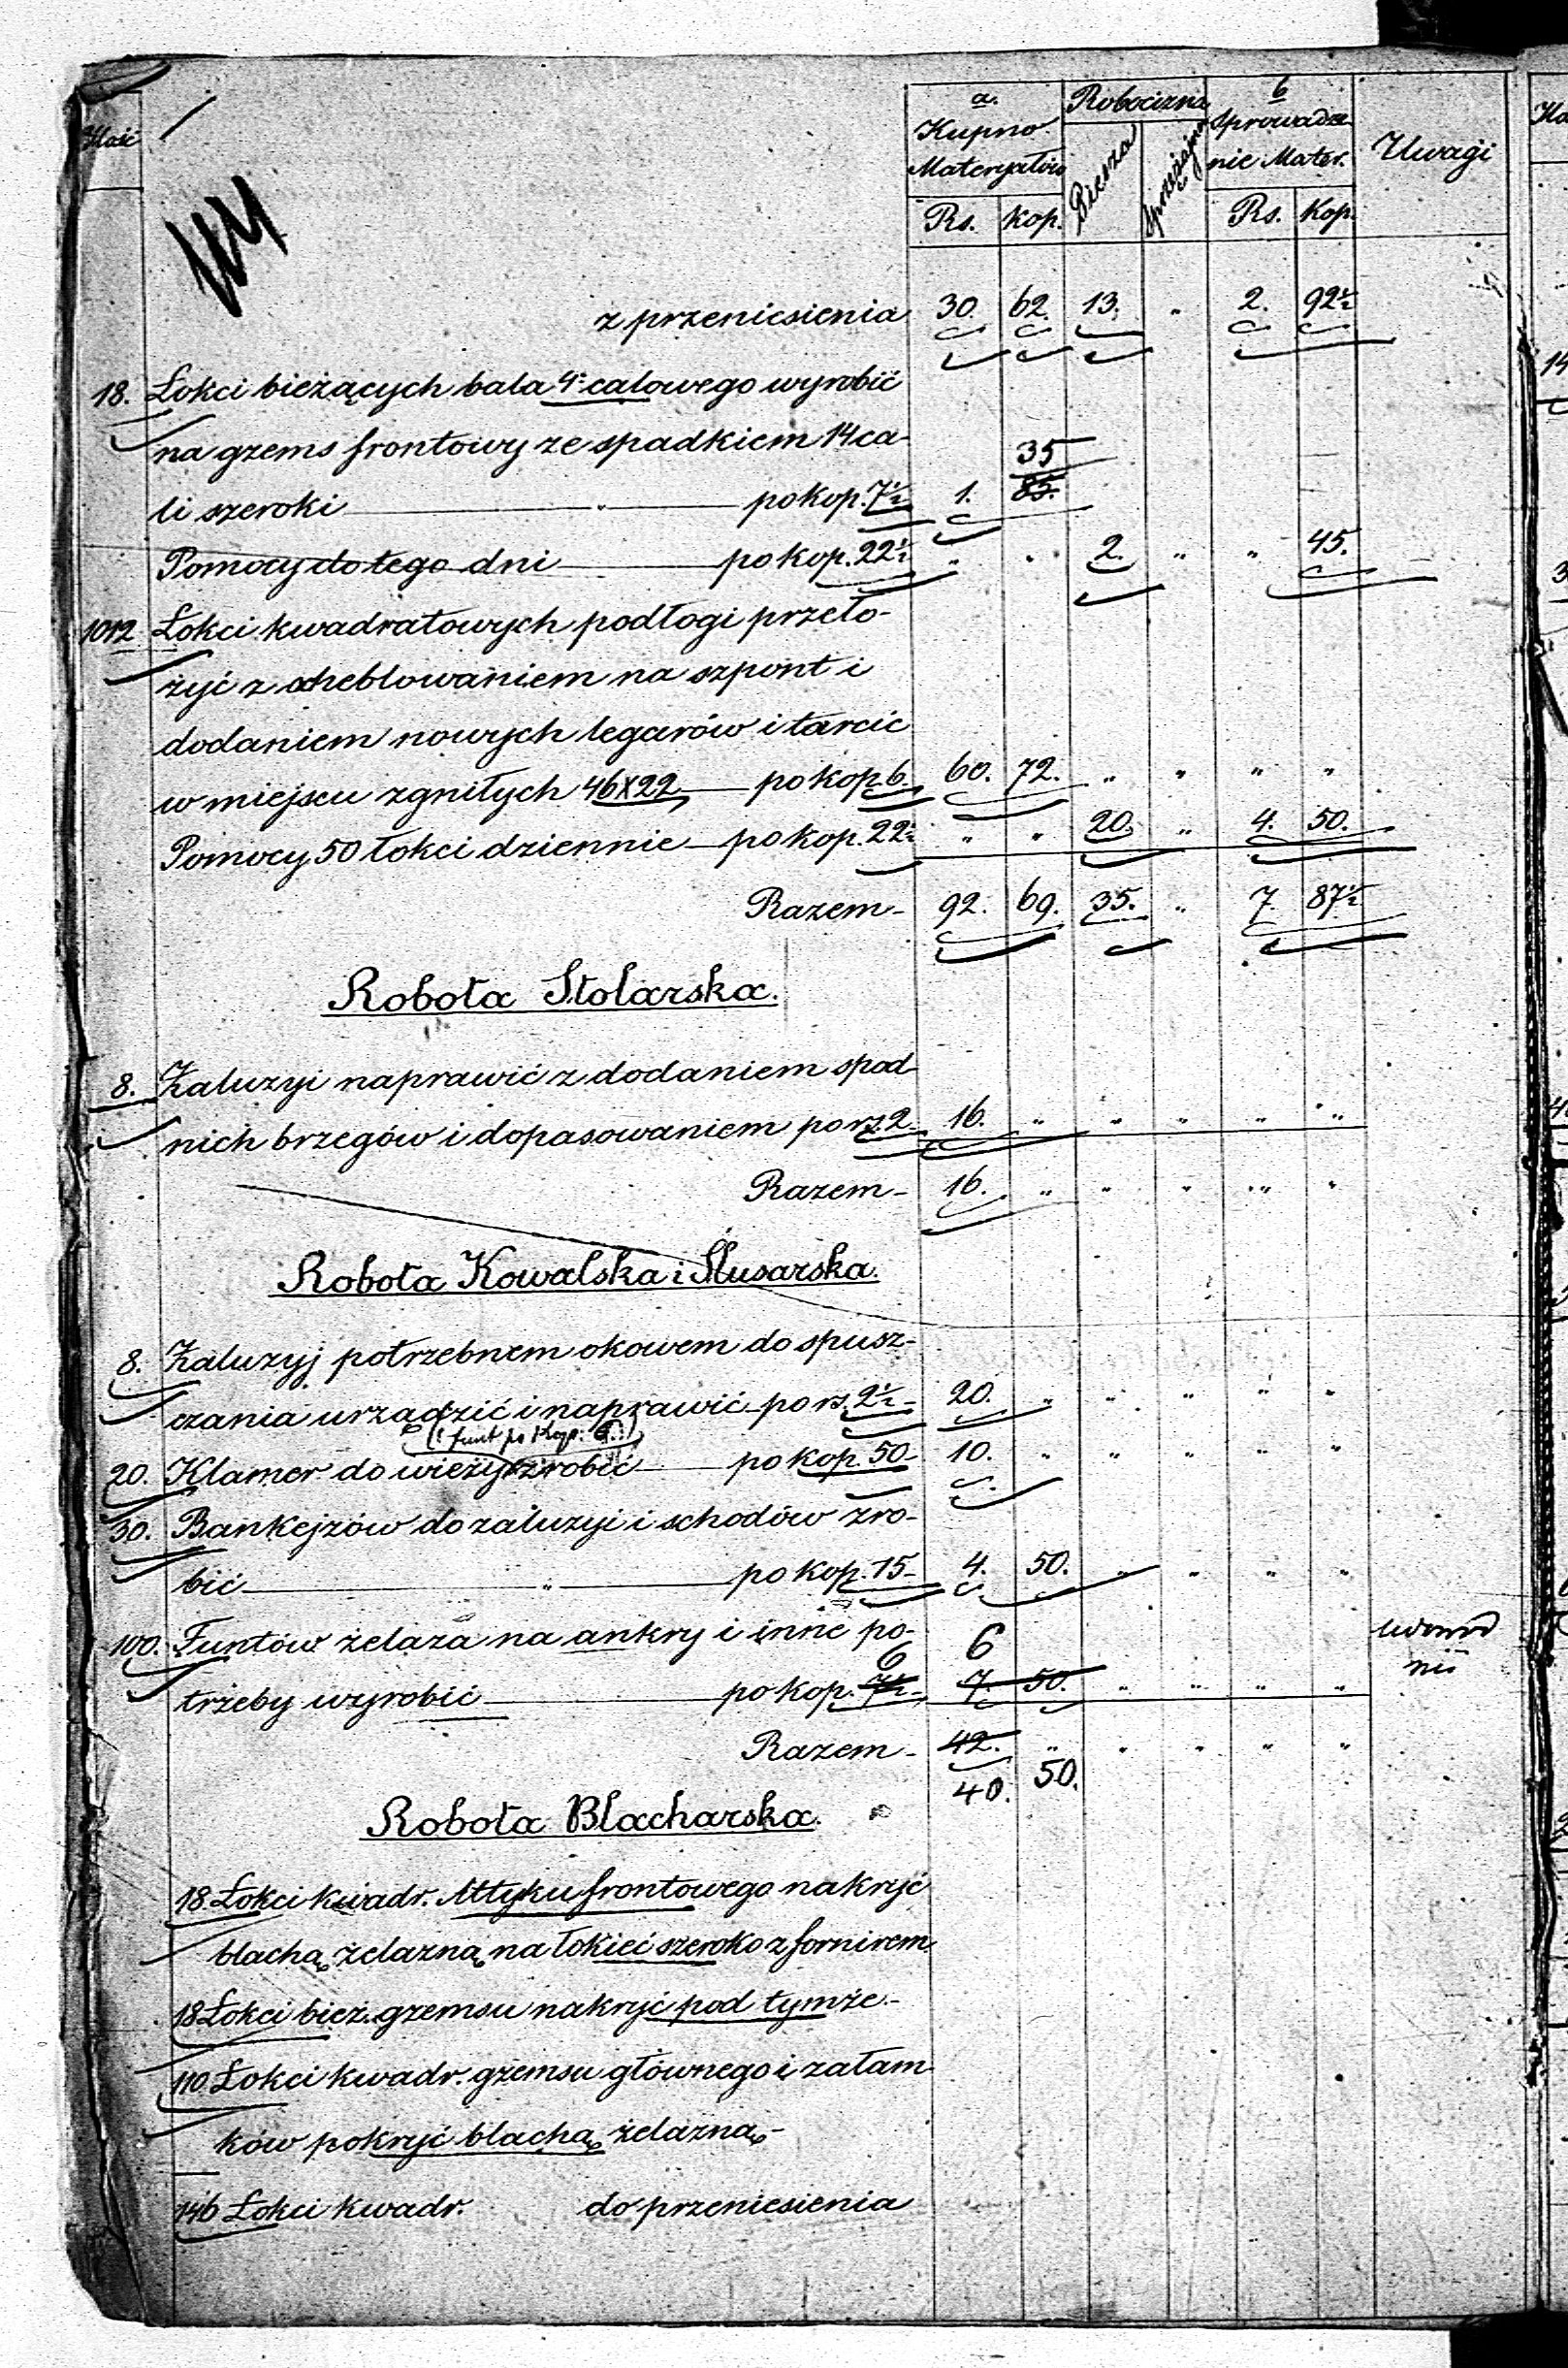 Ilość
a. Kupno Materyałów Rs. Kop.
Robocizna Piesza Sprzężajna
b Sprowadzenie Mater. Rs. Kop.
Uwagi
z przeniesienia 30. 62. 13. " 2. 92½
18. Łokci bieżących bala 4-calowego wyrobić
na gzems frontowy ze spadkiem 14 ca-
35
li szeroki " po kop. 7½ 1. 85.
Pomocy do tego dni po kop. 22½ " " 2. " " 45.
1012 Łokci kwadratowych podłogi przeło-
żyć z oheblowaniem na szpont i
dodaniem nowych legarów i tarcic
w miejscu zgniłych 46x22 po kop. 6. 60. 72. " " " "
Pomocy 50 łokci dziennie po kop. 22½ " " 20. " 4. 50.
Razem 92. 69. 35. " 7. 87½
Robota Stolarska.
8. Żaluzyi naprawić z dodaniem spod-
nich brzegów i dopasowaniem po rs. 2. 16. " " " " "
Razem 16. " " " " "
Robota Kowalska i Ślusarska.
8. Żaluzyj potrzebnem okowem do spusz-
czania urządzić i naprawić po rs. 2½ 20. " " " " "
(: funt po Kop: 6.:)
20. Klamer do wieży zrobić po kop. 50 10. " " " " "
30. Bankejzów do żaluzyi i schodów zro-
bić " po kop. 15 4. 50. " " " "
100. Funtów żelaza na ankry i inne po-
6 6
trzeby wyrobić po kop. 7½ 7. 50. " " " "
Razem 42. " " " " "
40. 50.
Robota Blacharska.
18 Łokci kwadr. Attyku frontowego nakryć
blachą żelazną na łokieć szeroko z fornirem
18 Łokci bież. gzemsu nakryć pod tymże
110 Łokci kwadr. gzemsu głównego i załam
ków pokryć blachą żelazną
146 Łokci kwadr. do przeniesienia